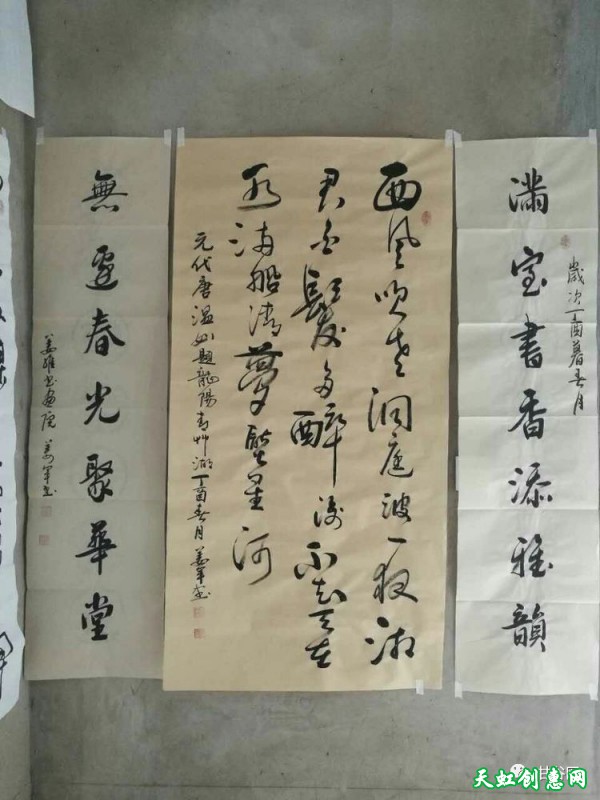 滿室書香添雅韻
歲次丁酉暮春月
西風吹老洞庭波一夜湘
君白髮多醉後不知天在
水滿船清夢壓星河
元代唐温如題龍陽青艸湖丁酉春月姜軍書
無邊春光聚華堂
姜維書画院 姜軍書
天虹创惠网